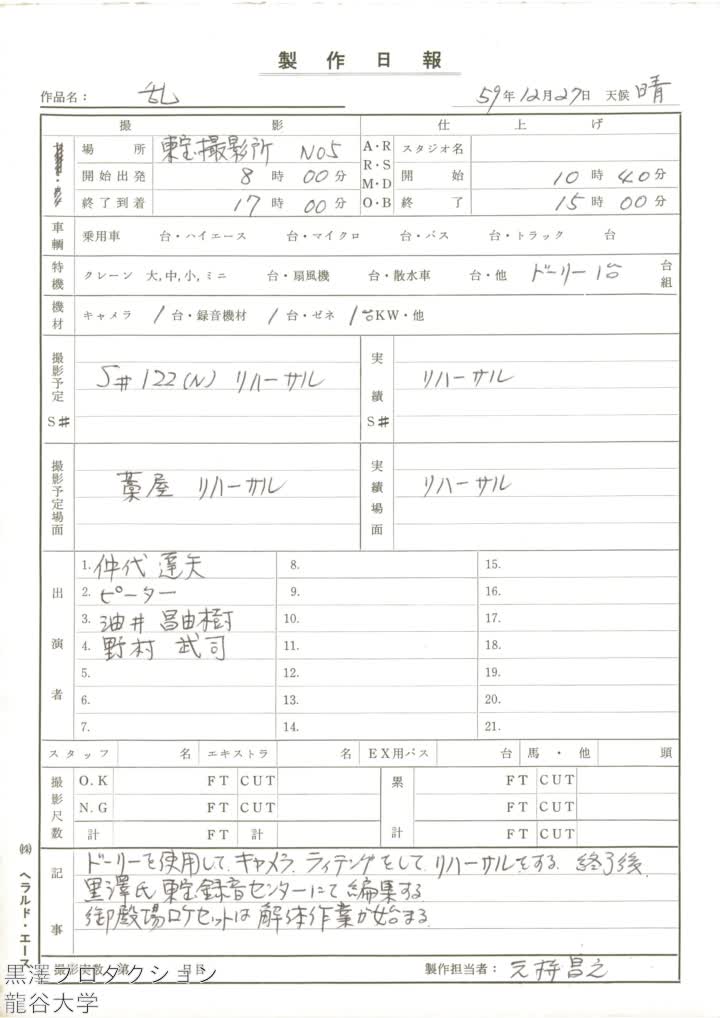 製作日報
作品名： 乱 59年12月27日 天候 晴
撮影 仕上げ
場所 東宝撮影所 NO5 A・R スタジオ名
開始出発 8時00分 R・S M・D 開始 10時40分
終了到着 17時00分 O・B 終了 15時00分
車輌 乗用車 台・ハイエース 台・マイクロ 台・バス 台・トラック 台
特機 クレーン 大,中,小,ミニ 台・扇風機 台・散水車 台・他 ドーリー1台 台組
機材 キャメラ 1台・録音機材 1台・ゼネ 1台KW・他
撮影予定S# S#122(N) リハーサル 実績S# リハーサル
撮影予定場面 藁屋 リハーサル 実績場面 リハーサル
出演者
1. 仲代達矢 8. 15.
2. ピーター 9. 16.
3. 油井昌由樹 10. 17.
4. 野村武司 11. 18.
5. 12. 19.
6. 13. 20.
7. 14. 21.
スタッフ 名 エキストラ 名 EX用バス 台 馬・他 頭
撮影尺数 O.K FT CUT 累計 FT CUT
N.G FT CUT FT CUT
計 FT 計 FT CUT
記事 ドーリーを使用して、キャメラ、ライテングをして、リハーサルをする。終了後、
黒澤氏東宝録音センターにて編集する
御殿場ロケセットは解体作業が始まる
撮影実数 第 日目 製作担当者： 元持昌之
㈱ ヘラルド・エース
黒澤プロダクション
龍谷大学